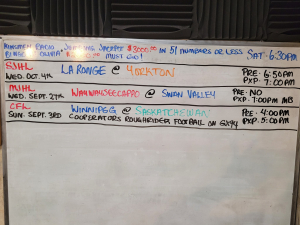 KINSMEN RADIO "JUMPING JACKPOT" $3000.00 IN 51 NUMBERS OR LESS SAT. 6:30PM
BINGO "OLIVIA" MUST GO!
SJHL LA RONGE @ YORKTON PRE - 6:50PM
WED. OCT. 4TH PXP - 7:00PM
MJHL WAYWAYSEECAPPO @ SWAN VALLEY PRE - NO
WED. SEPT. 27TH PXP - 7:00PM MB
CFL WINNIPEG @ SASKATCHEWAN PRE - 4:00PM
SUN. SEPT. 3RD COOPERATORS ROUGHRIDER FOOTBALL ON GX94 PXP - 5:00PM